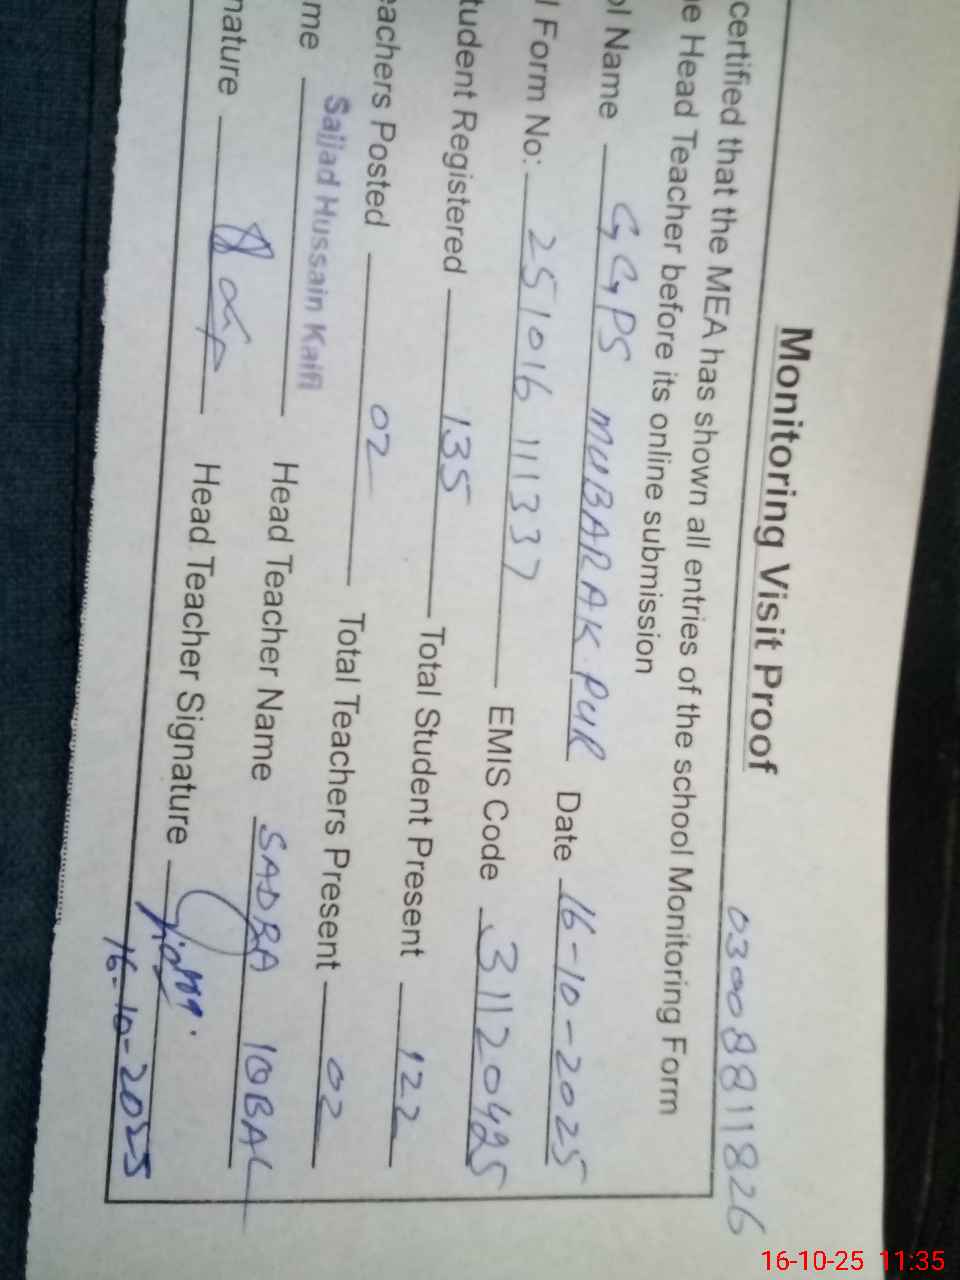 Monitoring Visit Proof
03008811826
certified that the MEA has shown all entries of the school Monitoring Form
e Head Teacher before its online submission
ol Name GGPS MUBARAK PUR Date 16-10-2025
l Form No: 25101611337 EMIS Code 31120425
tudent Registered 135 Total Student Present 122
eachers Posted 02 Total Teachers Present 02
me Sajjad Hussain Kaifi Head Teacher Name SADRA IQBAL
nature Head Teacher Signature
16-10-2025
16-10-25 11:35